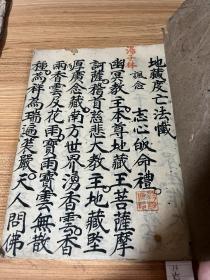 地藏度亡法懺
諷念 志心皈命禮
幽冥教主本尊地藏王菩薩摩
訶薩稽首慈悲大教主地藏堅
厚廣念藏南方世界湧香雲香
雨香雲及花雨寶雨寶雲無散
種爲祥爲瑞遍莊嚴天人問佛